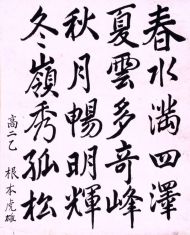 春水満四澤
夏雲多奇峰
秋月暢明輝
冬嶺秀孤松
高二乙 根本虎雄